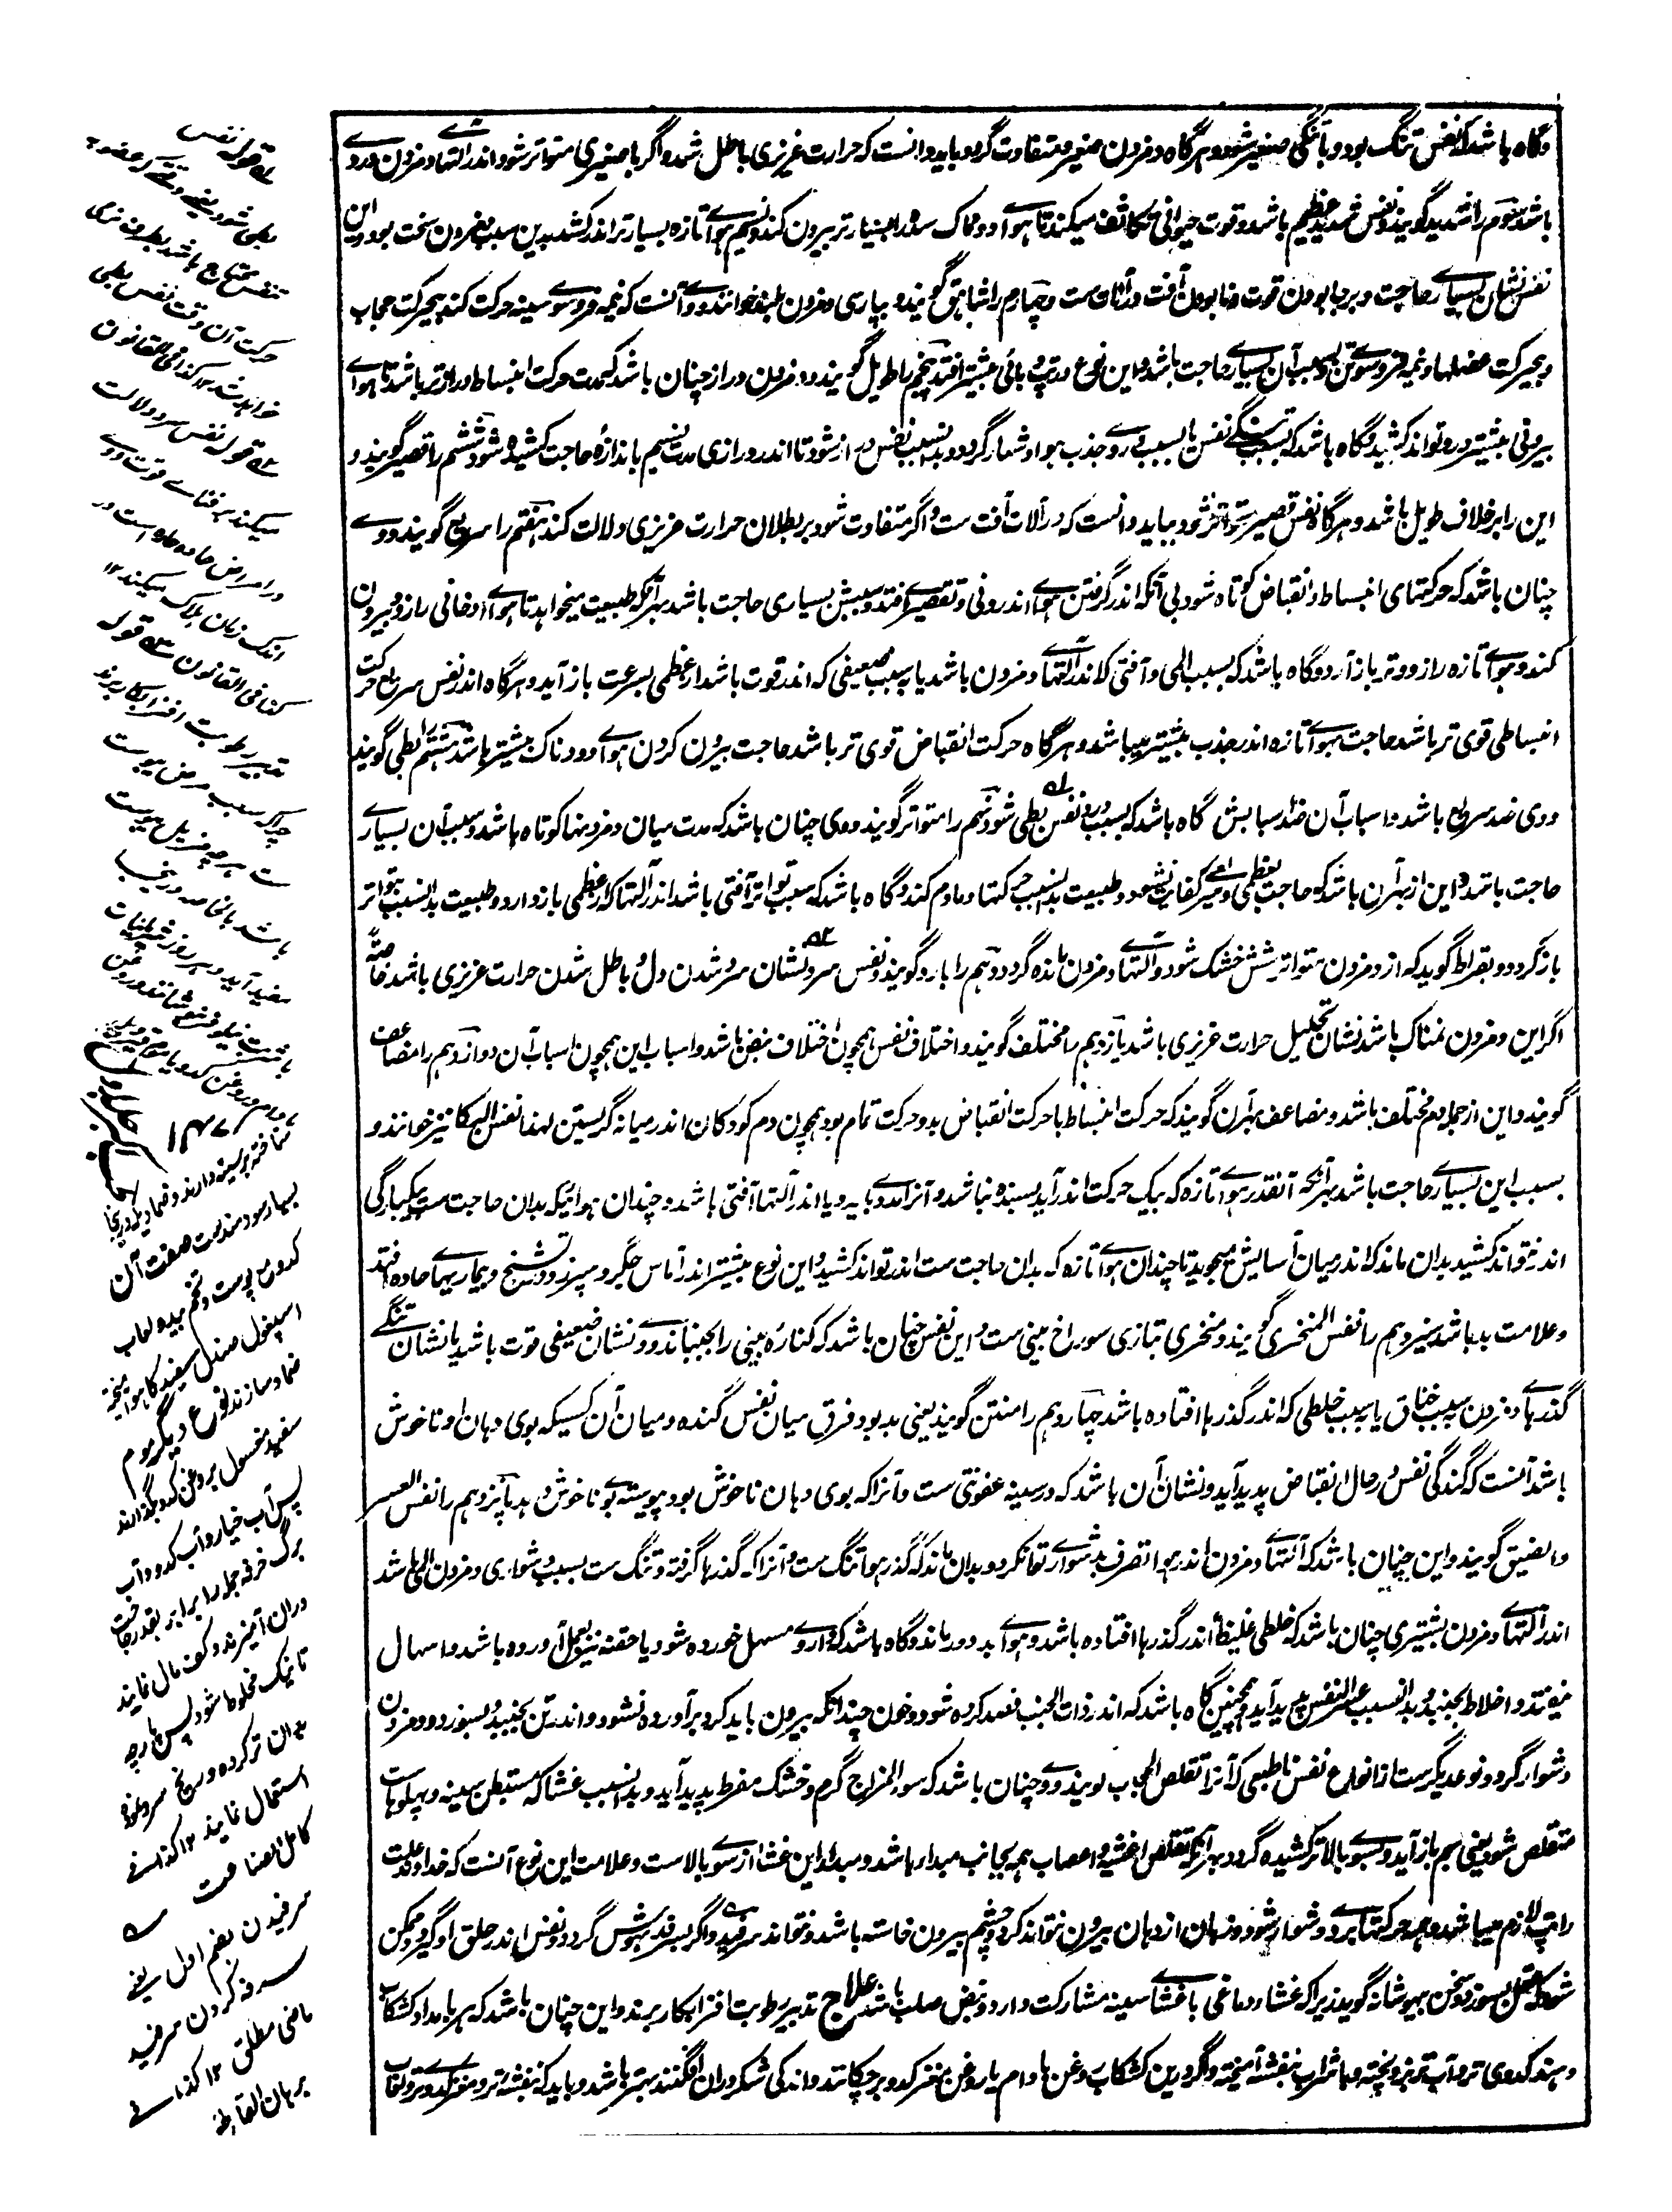 وگاه باشد که نفس تنگ بود و باتنگی صغیر شود و هرگاه دم زدن صغیر و متفاوت گردد باید دانست که حرارت غریزی باطل شد و اگر با صغیری متواتر شود اندر آلتهاء دم زدن دردے
باشد سوم را شدید گویند و نفس شدید عظیم باشد و قوت حیوانی تکاثف میکند تا هواء دودناک را بسیارتر بیرون کند و نسیم هواے تازه بسیارتر اندر کشد بدین سبب دم زدن سخت بود و این
نفس نشان بسیارے حاجت و بر جا بودن قوت و نابودن آفت در آلات ست و چهارم را شاهق گویند و بپارسی دم زدن بلند خوانند و وے آنست که نیمه فروسوے سینه حرکت کند بحرکت حجاب
و بحرکت عضلها و نیمه فروسوے تن و سبب آن بسیارے حاجت باشد و این نوع در تپ وبائی بیشتر افتد پنجم را طویل گویند و دم زدن دراز چنان باشد که مدت حرکت انبساط دراز تر باشد تا هواے
بیرونی بیشتر در تواند کشید و گاه باشد که بسبب تنگے نفس یا بسبب دردے جذب هوا دشوار گردد و بدانسبب نفس دراز شود تا اندر درازی مدت نسیم باندازۀ حاجت کشیده شود ششم را قصیر گویند و
این را برخلاف طویل باشد و هرگاه نفس قصیر متواتر شود بباید دانست که در آلات آفت ست و اگر متفاوت شود بر بطلان حرارت غریزی دلالت کند هفتم را سریع گویند و وے
چنان باشد که حرکتهای انبساط و انقباض کوتاه شود بی آنکه اندر گرفتن هواے اندرونی تقصیرے افتد و سببش بسیاری حاجت باشد بهر آنکه طبیعت میخواهد تا هواے دخانی را زود بیرون
کند و هواے تازه را زودتر باز آرد و گاه باشد که بسبب المی و آفتی که اندر آلتهاے دم زدن باشد یا بسبب ضعیفی که اندر قوت باشد از عظمی بسرعت باز آید و هرگاه اندر نفس سریع حرکت
انبساطی قوی تر باشد حاجت بهواے تازه اندر جذب بیشتر میباشد و هرگاه حرکت انقباض قوی تر باشد حاجت بیرون کردن هواے دودناک بیشتر باشد هشتم را بطی گویند
و وی ضد سریع باشد و اسباب آن ضد اسبابش گاه باشد که بسبب درد نفس بطی شود نهم را متواتر گویند و وی چنان باشد که مدت میان دم زدنها کوتاه باشد و سبب آن بسیارے
حاجت باشد و این از بهر آن باشد که حاجت بعظمی و سریعی کفایت نشود و طبیعت بدانسبب حرکتها دمادم کند و گاه باشد که سبب تواتر آفتی باشد اندر آلتها که از عظمی باز دارد و طبیعت بدانسبب بتواتر
باز گردد و بقراط گوید که از دم زدن متواتر شش خشک شود و آلتهاے دم زدن مانده گردد دهم را بارد گویند و نفس سرد نشان سرد شدن دل و باطل شدن حرارت غریزی باشد خاصةً
اگر این دم زدن نمناک باشد نشان تحلیل حرارت غریزی باشد یازدهم را مختلف گویند و اختلاف نفس همچون اختلاف نبض باشد و اسباب این همچون اسباب آن دوازدهم را مضاعف
گویند و این از جمله مختلف باشد و مضاعف بهر آن گویند که حرکت انبساط یا حرکت انقباض بدو حرکت تمام بود همچون دم کودکان اندر میانه گریستن لهذا نفس البکا نیز خوانند و
بسبب این بسیارے حاجت باشد بهر آنچه آنقدر هواے تازه که بیک حرکت اندر آید بسنده نباشد و آنرا مددے باید و یا اندر آلتها آفتی باشد و چندان هوا نیکه بدان حاجت ست بیکبارگی
اندر نتواند کشید بدان ماند که اندر میان آسایش میجوید تا چندان هواے تازه که بدان حاجت ست اندر تواند کشید و این نوع بیشتر اندر آماس جگر و سپرز و تشنج و بیماریهاے حاده افتد
و علامت بد باشد سیزدهم را نفس المنخری گویند و منخری بتازی سوراخ بینی ست و این نفس چنان باشد که کنارۀ بینی را بجنباند و وے نشان ضعیفی قوت باشد یا نشان تنگے
گذرهاے دم زدن بسبب خناق یا بسبب خلطی که اندر گذرها افتاده باشد چهاردهم را منتن گویند یعنی بدبو و فرق میان نفس گنده و میان آن کسیکه بوی دهان او ناخوش
باشد آنست که گندگی نفس در حال انقباض پدید آید و نشان آن باشد که در سینه عفونتی ست و آنرا که بوی دهان ناخوش بود پیوسته بوی ناخوش دهد پانزدهم را نفس العسیر
والضیق گویند و این چنان باشد که آلتهاے دم زدن اندر هوا تصرف بدشوارے تواند کرد و بدان ماند که گذر هوا تنگ ست و آنرا که گذرها گرفته و تنگ ست بسبب دشواری دم زدن المی باشد
اندر آلتهاے دم زدن بیشتری چنان باشد که خلطی غلیظ اندر گذرها افتاده باشد و هواے بد دور ماند و گاه باشد که داروے مسهل خورده شود و یا حقنه نیز بعمل آورده باشد و اسهال
نیفتد و اخلاط بجنبد و بدانسبب عسر النفس پدید آید و همچنین گاه باشد که اندر ذات الجنب فصد کرده شود و خون چندانکه بیرون باید کرد برآورده نشود و اندر تن بجنبد و بسوزد و دم زدن
دشوار گردد و نوع دیگرست از انواع نفس ناطبعی که آنرا تقلص الحجاب گویند و وے چنان باشد که سوء المزاج گرم و خشک مفرط پدید آید و بدانسبب غشا که مستبطن سینه و پهلوهاست
متقلص شود یعنی بهم باز آید و بسوے بالا تر کشیده گردد بهر آنکه تقلص اغشیه و اعصاب همه بجانب مبدأ باشد و مبدأ این غشا از سوے بالاست و علامت این نوع آنست که خداوند علت
را تپ لازم میباشد و همه حرکتها برو دشوار شود و زبان از دهان بیرون نتواند کرد و چشم بیرون خاسته باشد و نتواند سرفید و اگر بسرفد بیهوش گردد و نفس اندر حلق او گیرد و ممکن
شود که عقل بسوزد و سخن بیهوشانه گوید زیرا که غشاء دماغی با غشاے سینه مشارکت دارد و نبض صلب باشد علاج تدبیر رطوبت افزا بکار برند و این چنان باشد که هر بامداد کشکاب
دهند کدوی تر و آب تربز و پخته و با شراب بنفشه آمیخته و اگر درین کشکاب روغن بادام یا روغن مغز کدو برچکانند و اندکی شکر در آن افگنند بهتر باشد و باید که بنفشه تر و مغز کدو تر و لعاب
له قوله نفس
بطی شود یعنی وقتیکه عضو
تنفس محتاج باشد بطرف نرمی
حرکت آن وقت نفس بطی
خواهد شد ۱۲ کذا فی القانون
له قوله نفس سرد دلالت
میکند بر فناے قوت و وے
در امراض حاده علامت است در
اندک زمان هلاک میکند ۱۲
کذا فی القانون قوله
تدبیر رطوبت افزا بکار برند
چراکه سبب مرض یبوست
است هرچه مزیل یبوست
باشد بالخاصه درینجا
مفید آید و هر روز
بسیار سودمند ست صفت آن
کدوے پوست و تخم بید و لعاب
اسپغول صندل سفید کاهو آمیخته
ضماد سازند نوع دیگر موم
سفید مغسول بروغن کدو بگدازند
پس آب خیار و آب کدو و آب
برگ خرفه جمله را برابر بقدر حاجت
دران آمیزند و کف مال نمایند
تا نیک مخلوط شود پس پارچه
بدان تر کرده و بر یخ سرد نموده
استعمال نمایند ۱۲ کذا فی
کامل الصناعت
سرفیدن بضم اول یعنی
سرفه کردن سرفید
ماضی مطلق ۱۲ کذا فی
برهان القاطع